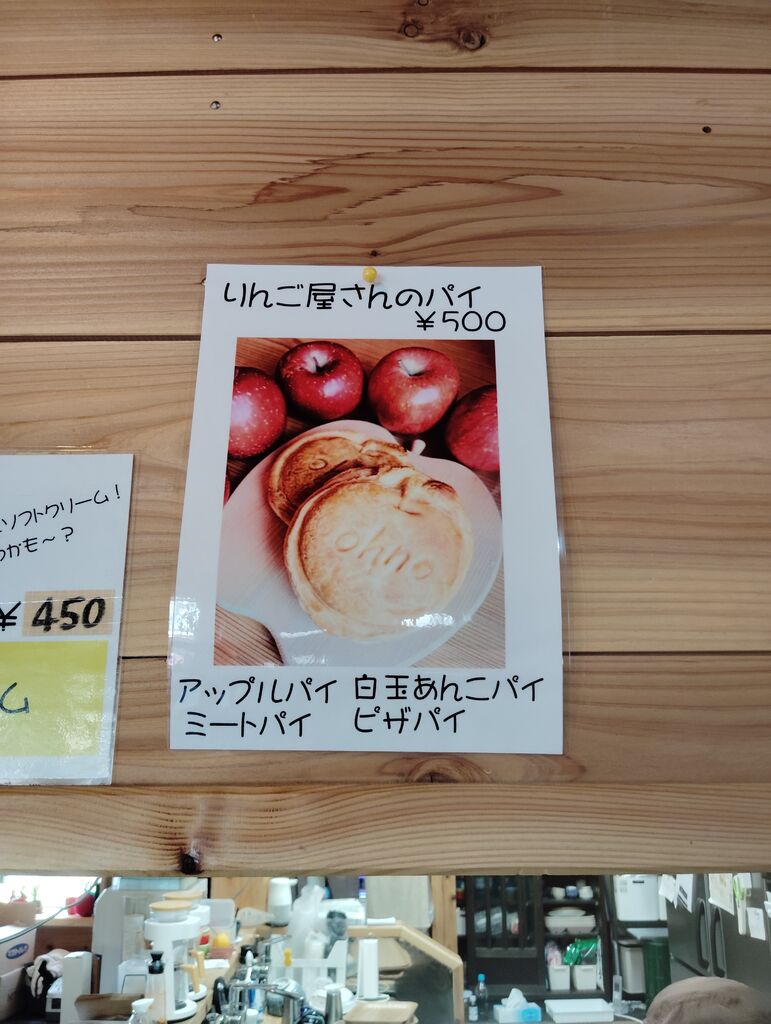 りんご屋さんのパイ
¥500
ohno
アップルパイ 白玉あんこパイ
ミートパイ ピザパイ
ソフトクリーム!
かも～?
¥450
ム